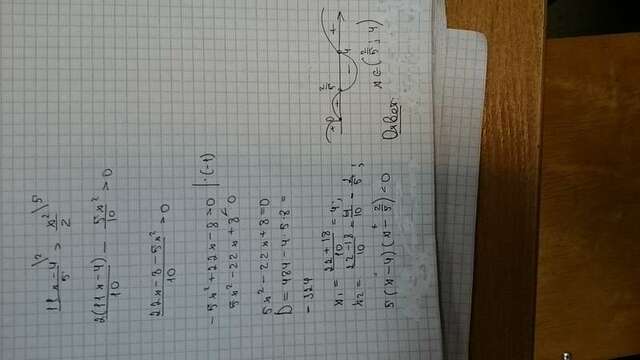 (11x-4)/5 \2 > x²/2 \5
2(11x-4)/10 - 5x²/10 > 0
(22x-8-5x²)/10 > 0
-5x²+22x-8>0 | ·(-1)
5x²-22x+8<0
5x²-22x+8=0
D=484-4·5·8=
-324
x₁ = (22+18)/10 = 4;
x₂ = (22-18)/10 = 4/10 = 2/5;
5(x-4)(x-2/5)<0
+ 0 + 2/5 - 4 +
x∈(2/5; 4)
Ответ